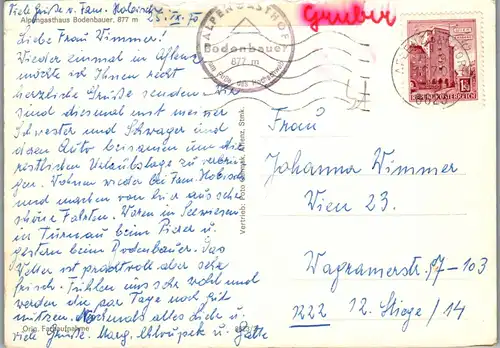 Viele Grüße v. Fam. Hobisch
Alpengasthaus Bodenbauer, 877 m
25. IX. 70
Liebe Frau Wimmer!
Wieder einmal in Aflenz
möchte ich Ihnen recht
herzliche Grüße senden. Wir
sind diesmal mit meiner
Schwester und Schwager und
deren Auto beisammen um die
restlichen Urlaubstage zu verbrin-
gen. Wohnen wieder bei Fam. Hobisch
und machen von hier aus sehr
schöne Fahrten. Waren in Seewiesen
in Turnau beim und
gestern beim Bodenbauer. Das
Wetter ist prachtvoll aber sehr
frisch. Fühlen uns sehr wohl und
werden die par Tage noch gut
nützen. Nochmals alles Liebe u.
viele Grüße. Marg. u. Gatte
Orig. Farbaufnahme
Vertrieb: Foto Aflenz, Stmk.
ALPENGASTHOF
Bodenbauer
877 m
am Fuße des Hochschwab
Gruber
REPUBLIK ÖSTERREICH
8623
Frau
Johanna Wimmer
Wien 23.
Wagramerstr. 97-103
1222 12. Stiege / 14